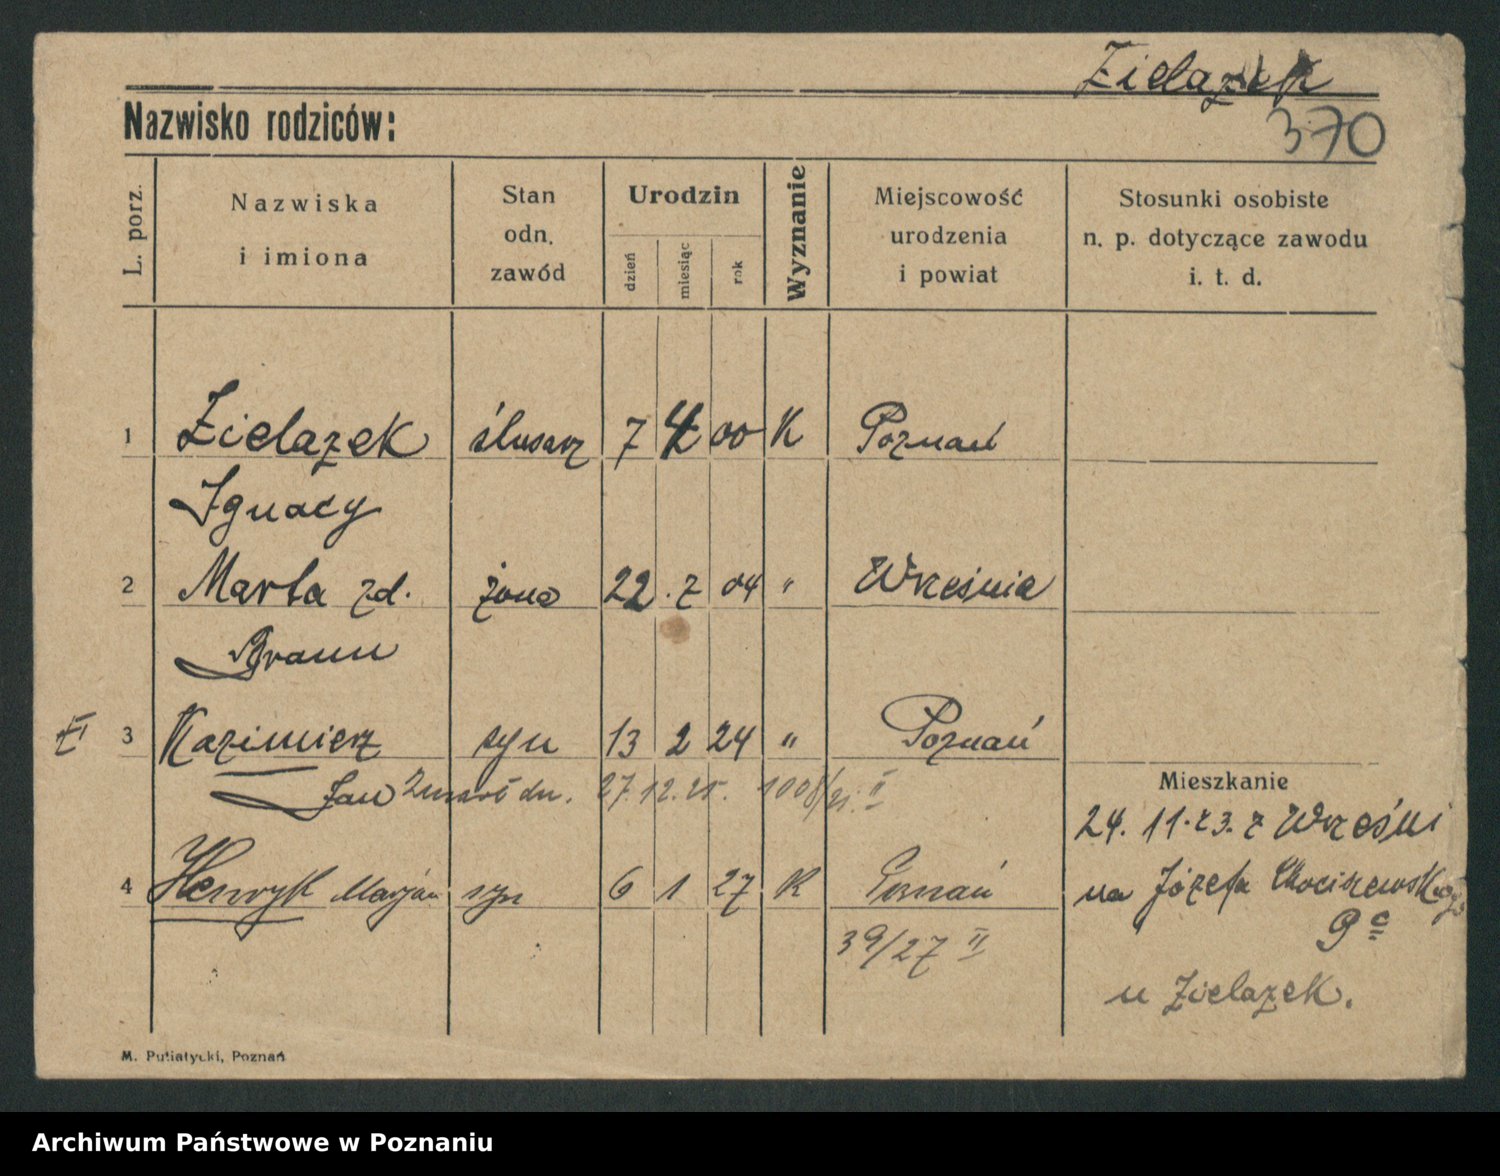 Zielazek
370
Nazwisko rodziców:
L. porz.
Nazwiska
i imiona
Stan
odn.
zawód
Urodzin
dzień
miesiąc
rok
Wyznanie
Miejscowość
urodzenia
i powiat
Stosunki osobiste
n. p. dotyczące zawodu
i. t. d.
1 Zielazek ślusarz 7 4 00 K Poznań
Ignacy
2 Marta zd. żona 22. 2 04 " Września
Braun
VI 3 Kazimierz syn 13 2 24 " Poznań
Jan Zmarł dn. 27.12.25. 1008/25. II
4 Henryk Marjan syn 6 1 27 K Poznań
39/27 II
Mieszkanie
24. 11. 23. z Wrześni
na Józefa Chociszewskiego
9c
u Zielazek.
M. Putiatycki, Poznań
Archiwum Państwowe w Poznaniu